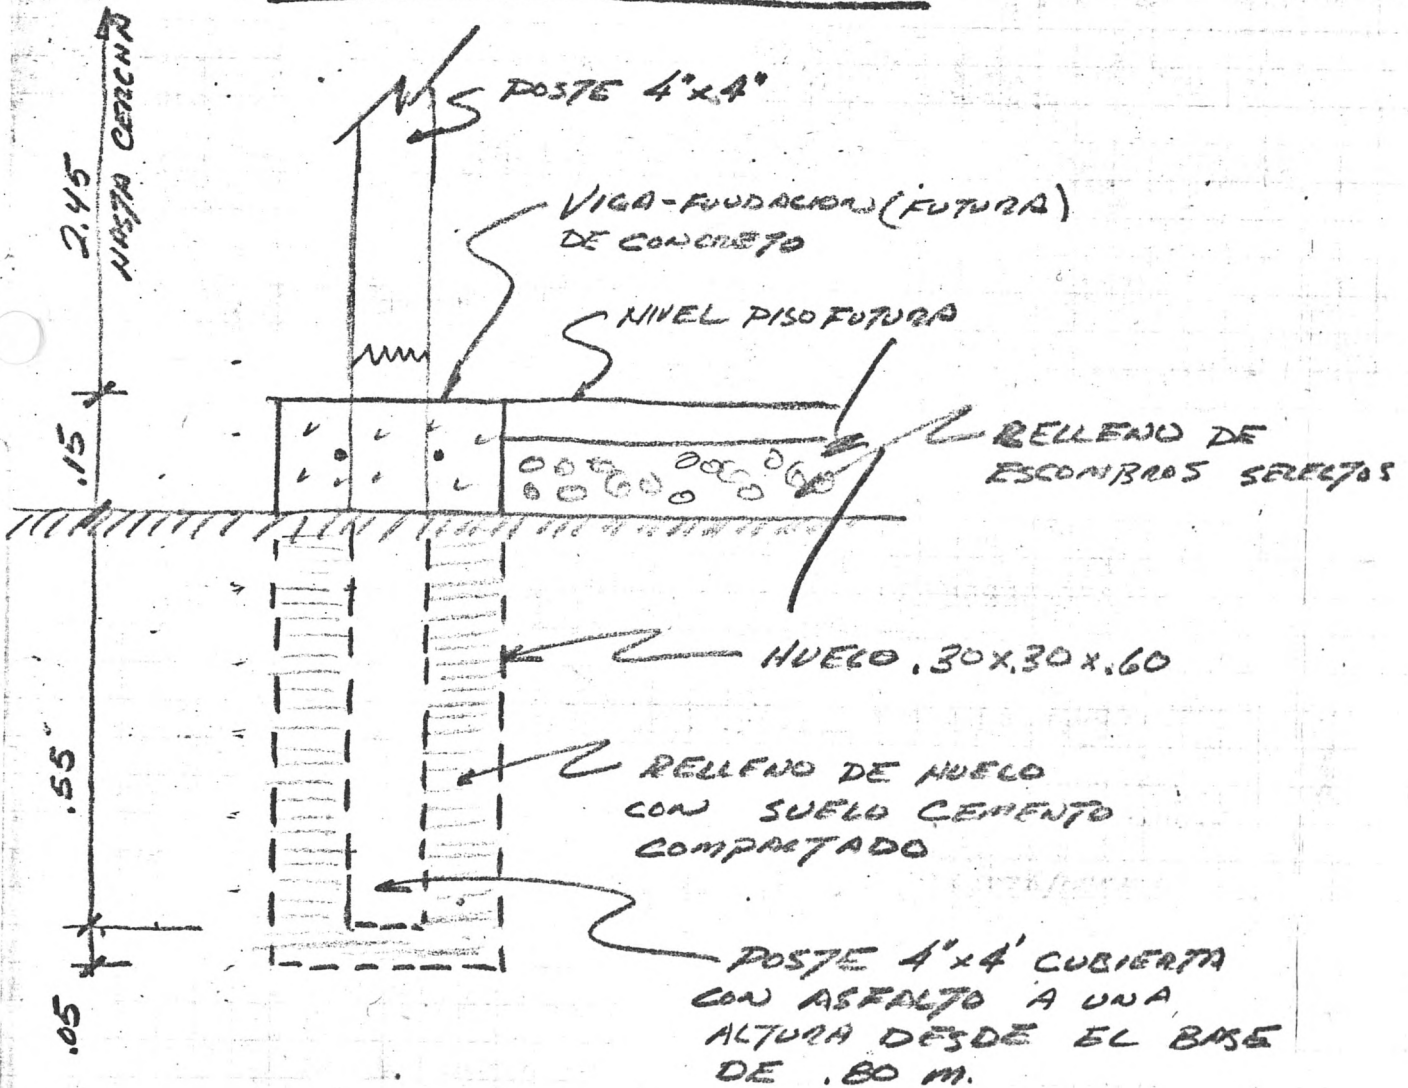 POSTE 4"x4"
2.45
HASTA CERCHA
VIGA-FUNDACION (FUTURA)
DE CONCRETO
NIVEL PISO FUTURA
.15
RELLENO DE
ESCOMBROS SELECTOS
HUECO .30x.30x.60
.55
RELLENO DE HUECO
CON SUELO CEMENTO
COMPACTADO
POSTE 4"x4' CUBIERTA
CON ASFALTO A UNA
ALTURA DESDE EL BASE
DE .80 m.
.05